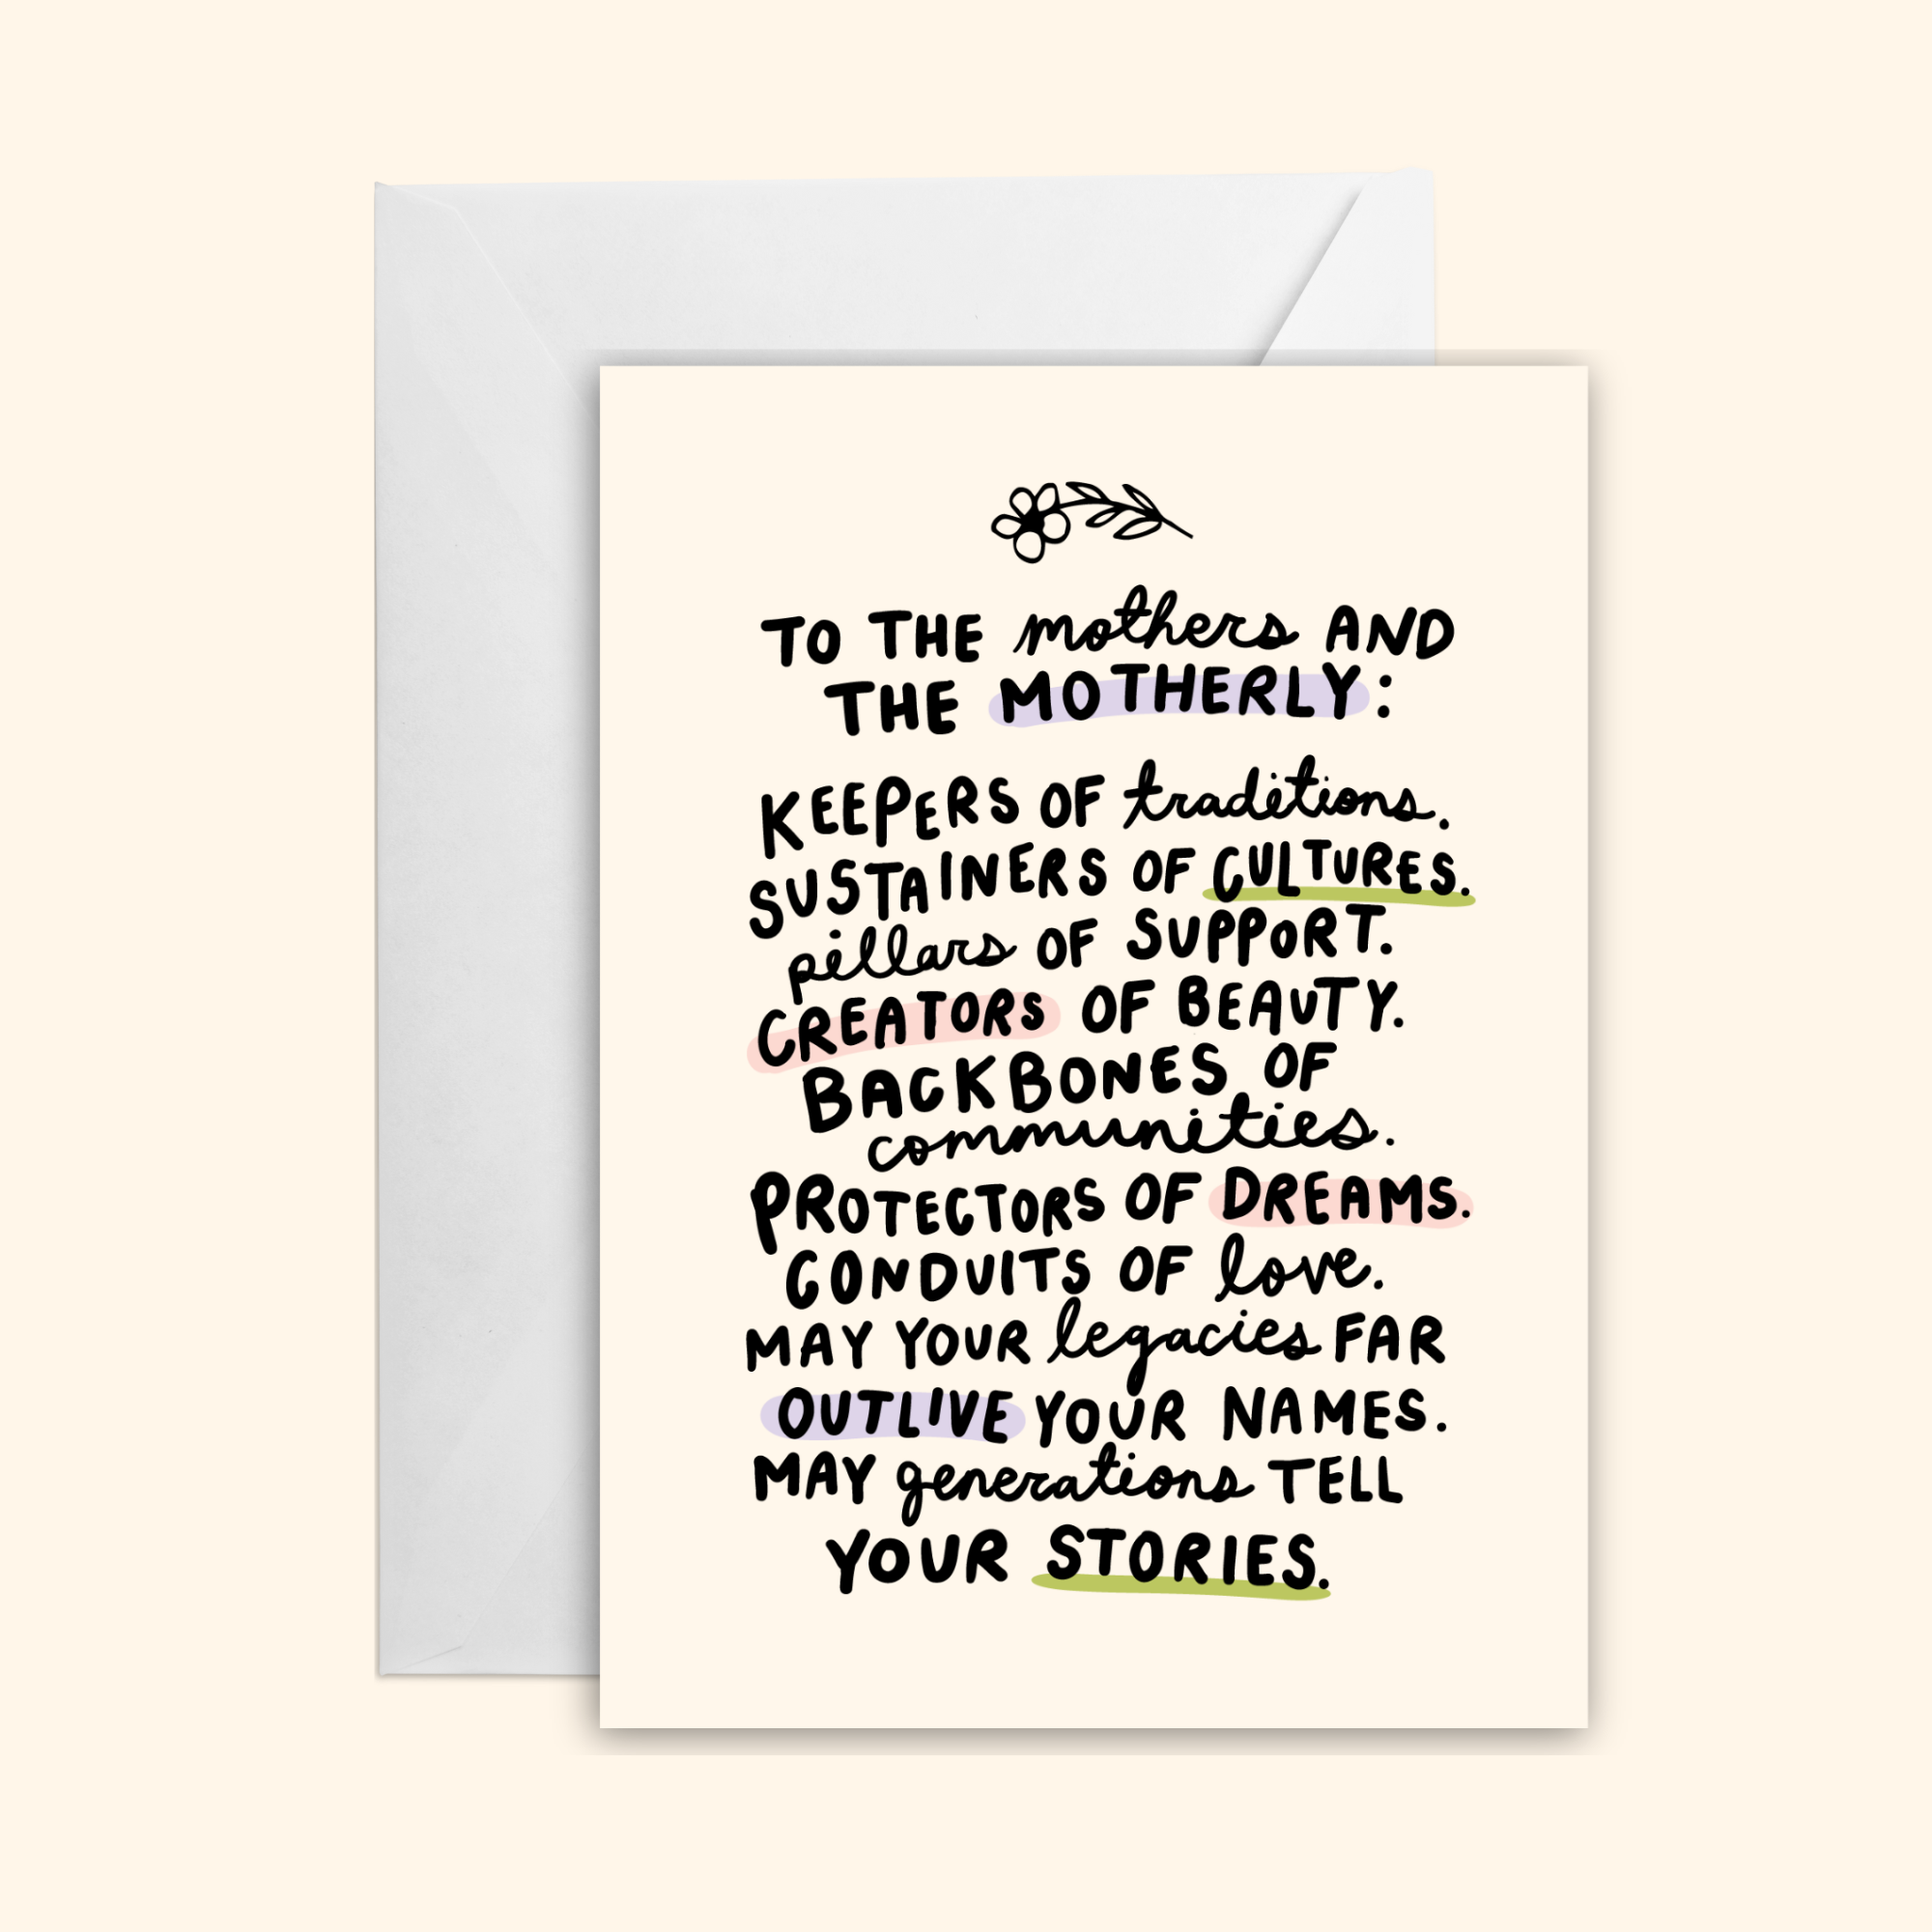 TO THE mothers AND
THE MOTHERLY:
KEEPERS OF traditions.
SUSTAINERS OF CULTURES.
pillars OF SUPPORT.
CREATORS OF BEAUTY.
BACKBONES OF
communities.
PROTECTORS OF DREAMS.
CONDUITS OF love.
MAY YOUR legacies FAR
OUTLIVE YOUR NAMES.
MAY generations TELL
YOUR STORIES.